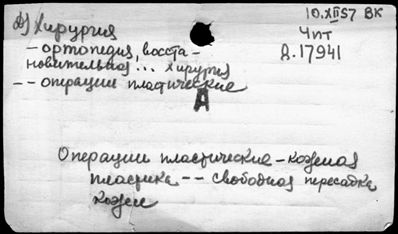 10.XII57 ВК
Чпт
Д.17941
д) Хирургия
- ортопедия, восста-
новительная... хирургия
-- операции пластические
А
Операции пластические - кожная
пластика -- свободная пересадка
кожи